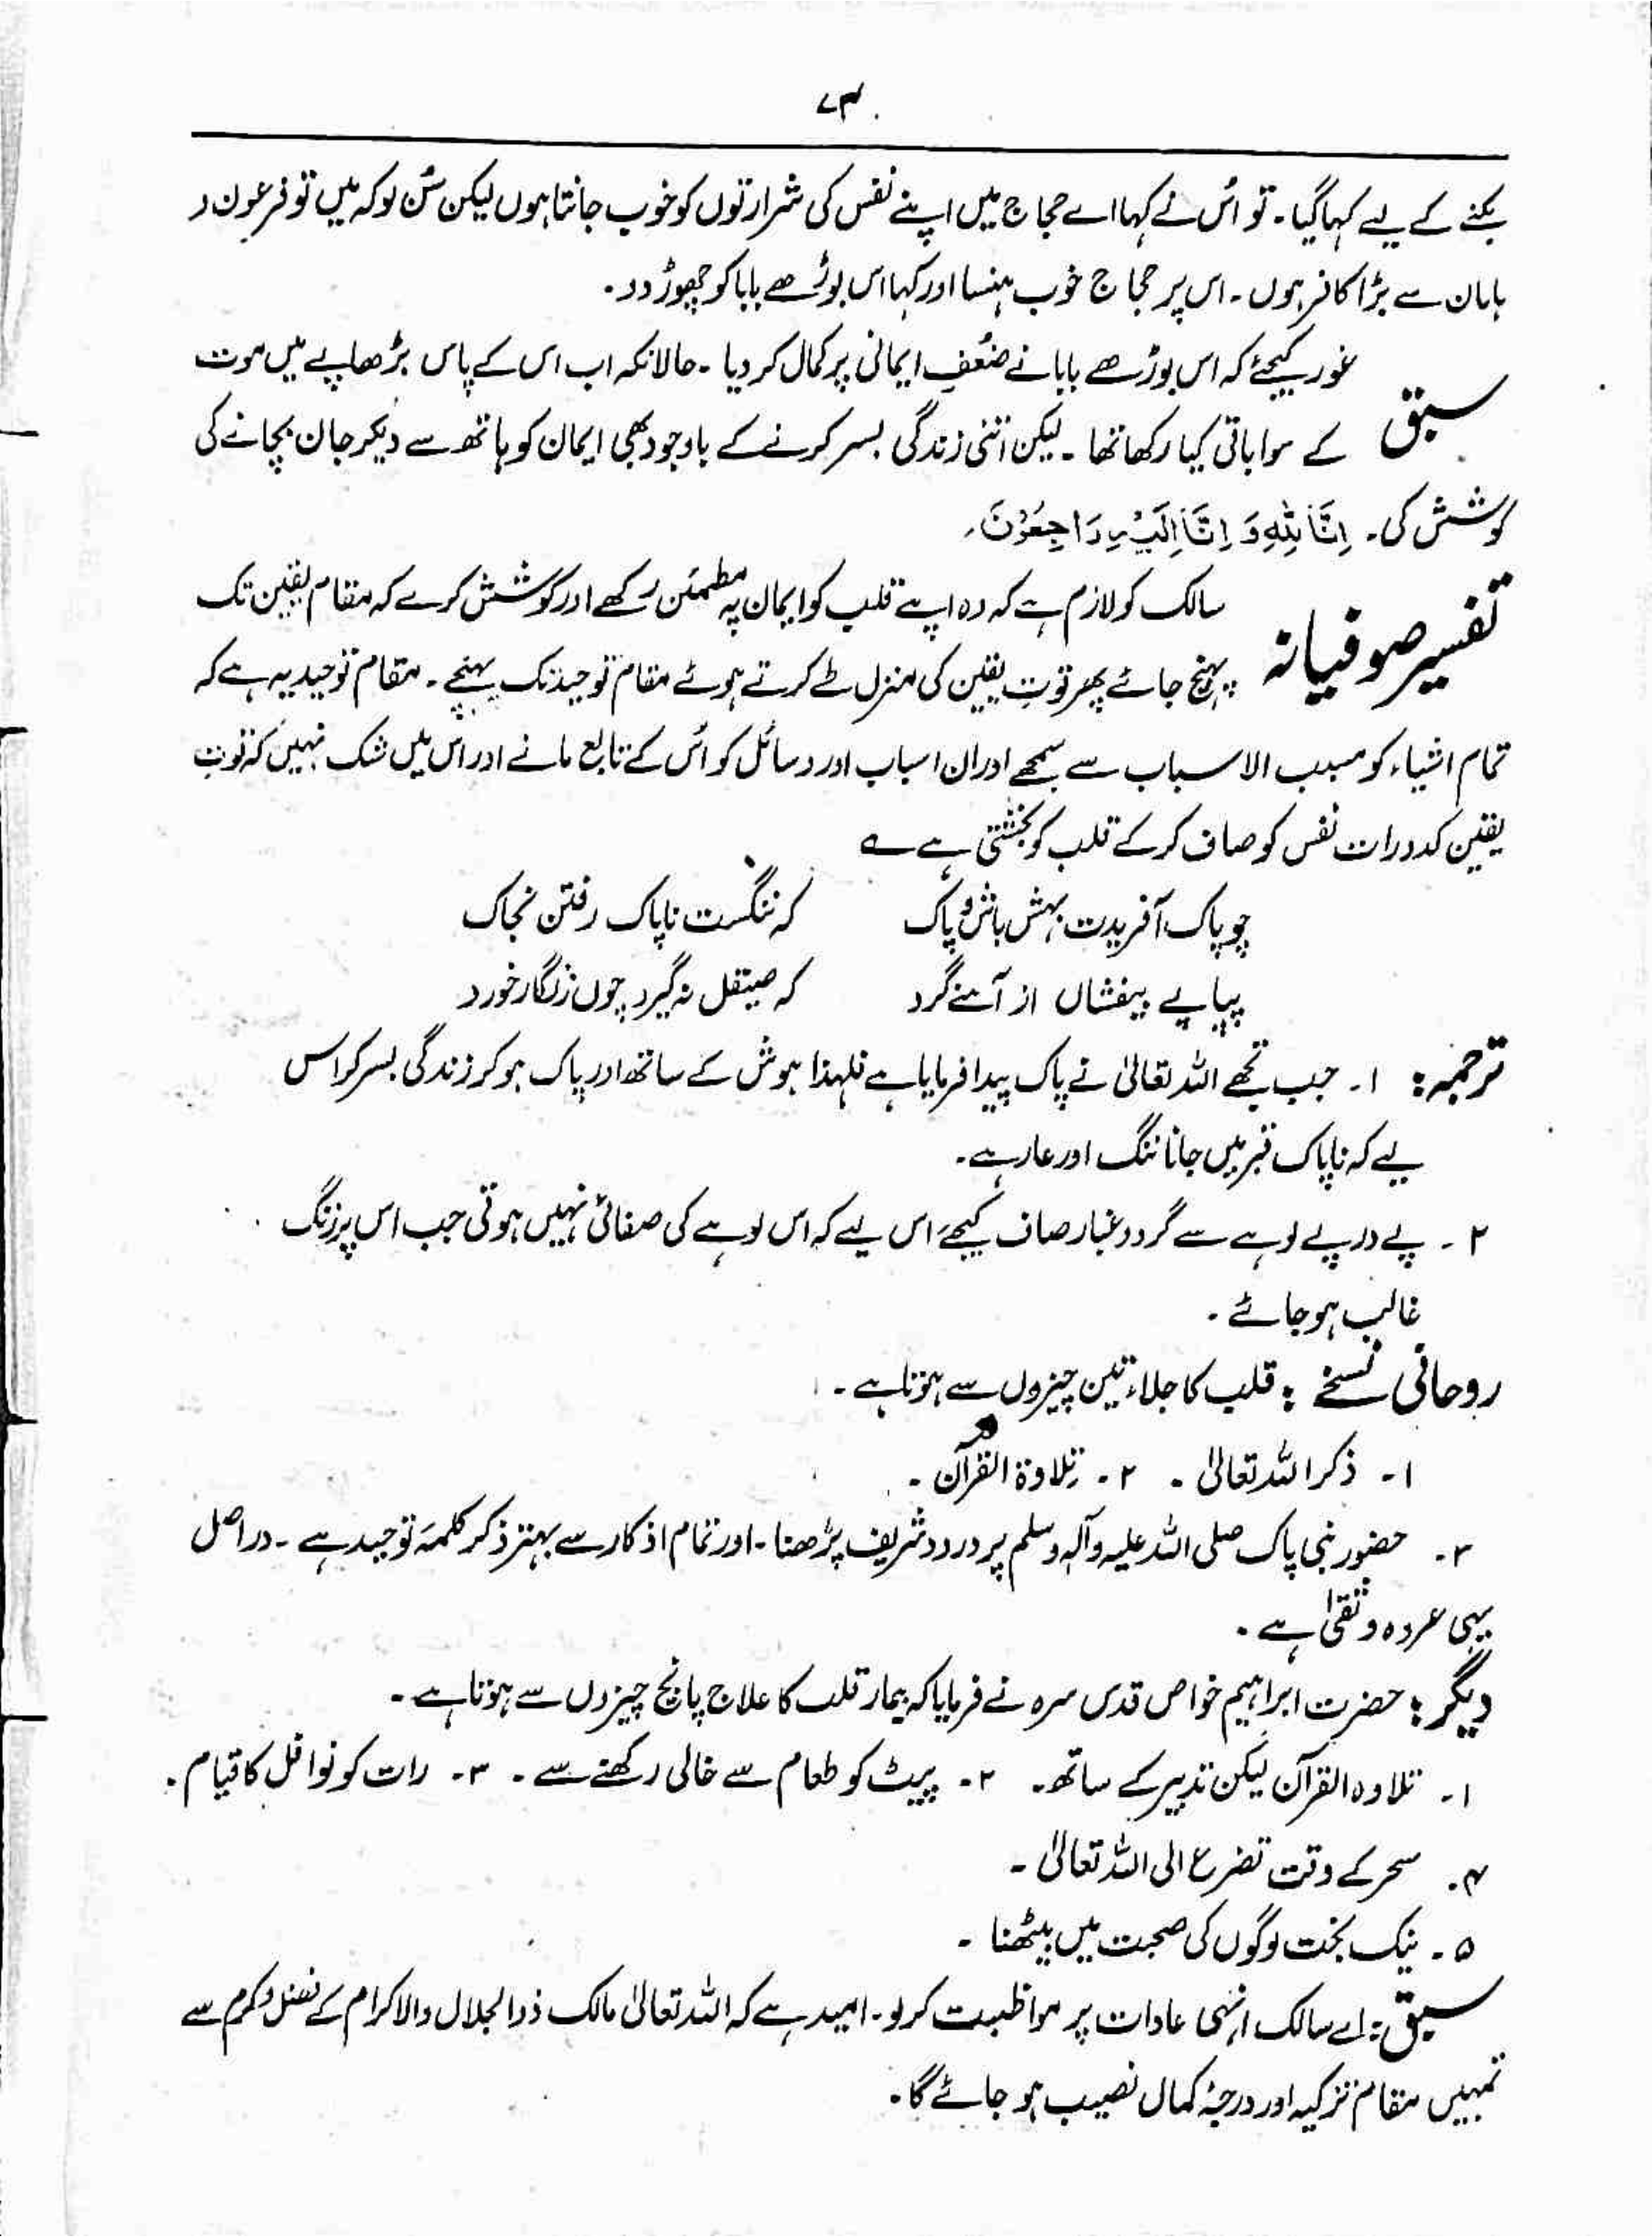 ۷۳
بکنے کے لیے کہا گیا۔ تو اُس نے کہا اے حجاج میں اپنے نفس کی شرارتوں کو خوب جانتا ہوں لیکن سُن لو کہ میں تو فرعون و
ہامان سے بڑا کافر ہوں۔ اس پر حجاج خوب ہنسا اور کہا اس بوڑھے بابا کو چھوڑ دو۔
غور کیجئے کہ اس بوڑھے بابا نے ضُعفِ ایمانی پر کمال کر دیا۔ حالانکہ اب اس کے پاس بڑھاپے میں موت
سبق کے سوا باقی کیا رکھا تھا۔ لیکن اتنی زندگی بسر کرنے کے باوجود بھی ایمان کو ہاتھ سے دیکر جان بچانے کی
کوشش کی۔ اِنَّا لِلّٰهِ وَ اِنَّا اِلَیْهِ رَاجِعُوْنَ۔
سالک کو لازم ہے کہ وہ اپنے قلب کو ایمان پہ مطمئن رکھے اور کوشش کرے کہ مقام یقین تک
تفسیر صوفیانہ پہنچ جائے پھر قوتِ یقین کی منزل طے کرتے ہوئے مقام توحید تک پہنچے۔ مقام توحید یہ ہے کہ
تمام اشیاء کو مسبب الاسباب سے سمجھے اور ان اسباب اور وسائل کو اُس کے تابع مانے اور اس میں شک نہیں کہ قوتِ
یقین کدورات نفس کو صاف کر کے قلب کو بخشتی ہے ؎
چو پاک آفریدت بہش باش و پاک کہ ننگست ناپاک رفتن بخاک
پیاپے بیفشاں از آئنہ گرد کہ صیقل نہ گیرد چوں زنگار خورد
ترجمہ: ۱۔ جب تجھے اللہ تعالیٰ نے پاک پیدا فرمایا ہے فلہذا ہوش کے ساتھ اور پاک ہو کر زندگی بسر کر اس
لیے کہ ناپاک قبر میں جانا ننگ اور عار ہے۔
۲۔ پے در پے لوہے سے گرد و غبار صاف کیجئے اس لیے کہ اس لوہے کی صفائی نہیں ہوتی جب اس پر زنگ
غالب ہو جائے۔
روحانی نسخے: قلب کا جلاء تین چیزوں سے ہوتا ہے۔
۱۔ ذکر اللہ تعالیٰ۔ ۲۔ تلاوۃ القرآن۔
۳۔ حضور نبی پاک صلی اللہ علیہ وآلہ وسلم پر درود شریف پڑھنا۔ اور تمام اذکار سے بہتر ذکر کلمہ توحید ہے۔ دراصل
یہی عروہ وثقیٰ ہے۔
دیگر: حضرت ابراہیم خواص قدس سرہ نے فرمایا کہ بیمار قلب کا علاج پانچ چیزوں سے ہوتا ہے۔
۱۔ تلاوہ القرآن لیکن تدبیر کے ساتھ۔ ۲۔ پیٹ کو طعام سے خالی رکھنے سے۔ ۳۔ رات کو نوافل کا قیام۔
۴۔ سحر کے وقت تضرع الی اللہ تعالیٰ۔
۵۔ نیک بخت لوگوں کی صحبت میں بیٹھنا۔
سبق: اے سالک انہی عادات پر مواظبت کر لو۔ امید ہے کہ اللہ تعالیٰ مالک ذوالجلال والاکرام کے فضل و کرم سے
تمہیں مقام تزکیہ اور درجۂ کمال نصیب ہو جائے گا۔